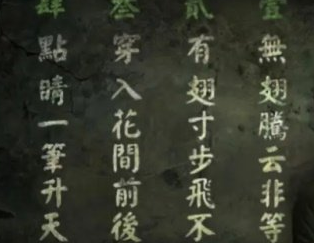 壹無翅騰云非等
貳有翅寸步飛不
叁穿入花間前後
肆點睛一筆升天